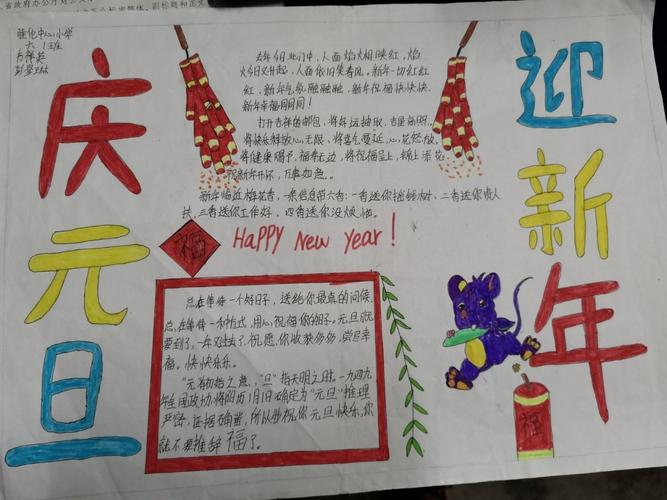 庆元旦
迎新年
六.1班
去年今日此门中，人面焰火相映红，焰
火今日又升起，人面依旧笑春风，新年一切红红
红，新年气象融融融，新年祝福快快快，
新年幸福同同同！
打开吉祥的邮包，将好运抽取，吉星高照，
将快乐释放心无限，将喜气蔓延，心花怒放，
将健康赐予，福寿无边，将祝福呈上，锦上添花
祝新年开怀，万事如意。
新年临近梅花香，一条信息带六香：一香送你摇钱树，二香送你贵人
扶，三香送你工作好，四香送你没烦恼。
福
HaPPY New year!
总在等待一个好日子，送给你最真的问候，
总在等待一种方式，用心祝福你的日子。元旦就
要到了，一年又过去了，祝愿你收获多多，尝尽幸
福。快快乐乐。
"元"有初始之意，"旦"指天明之时。一九四九
年全国政协将阳历1月1日确定为"元旦"推理
严密，证据确凿，所以助祝你元旦快乐，你
就不要推辞福了。
福